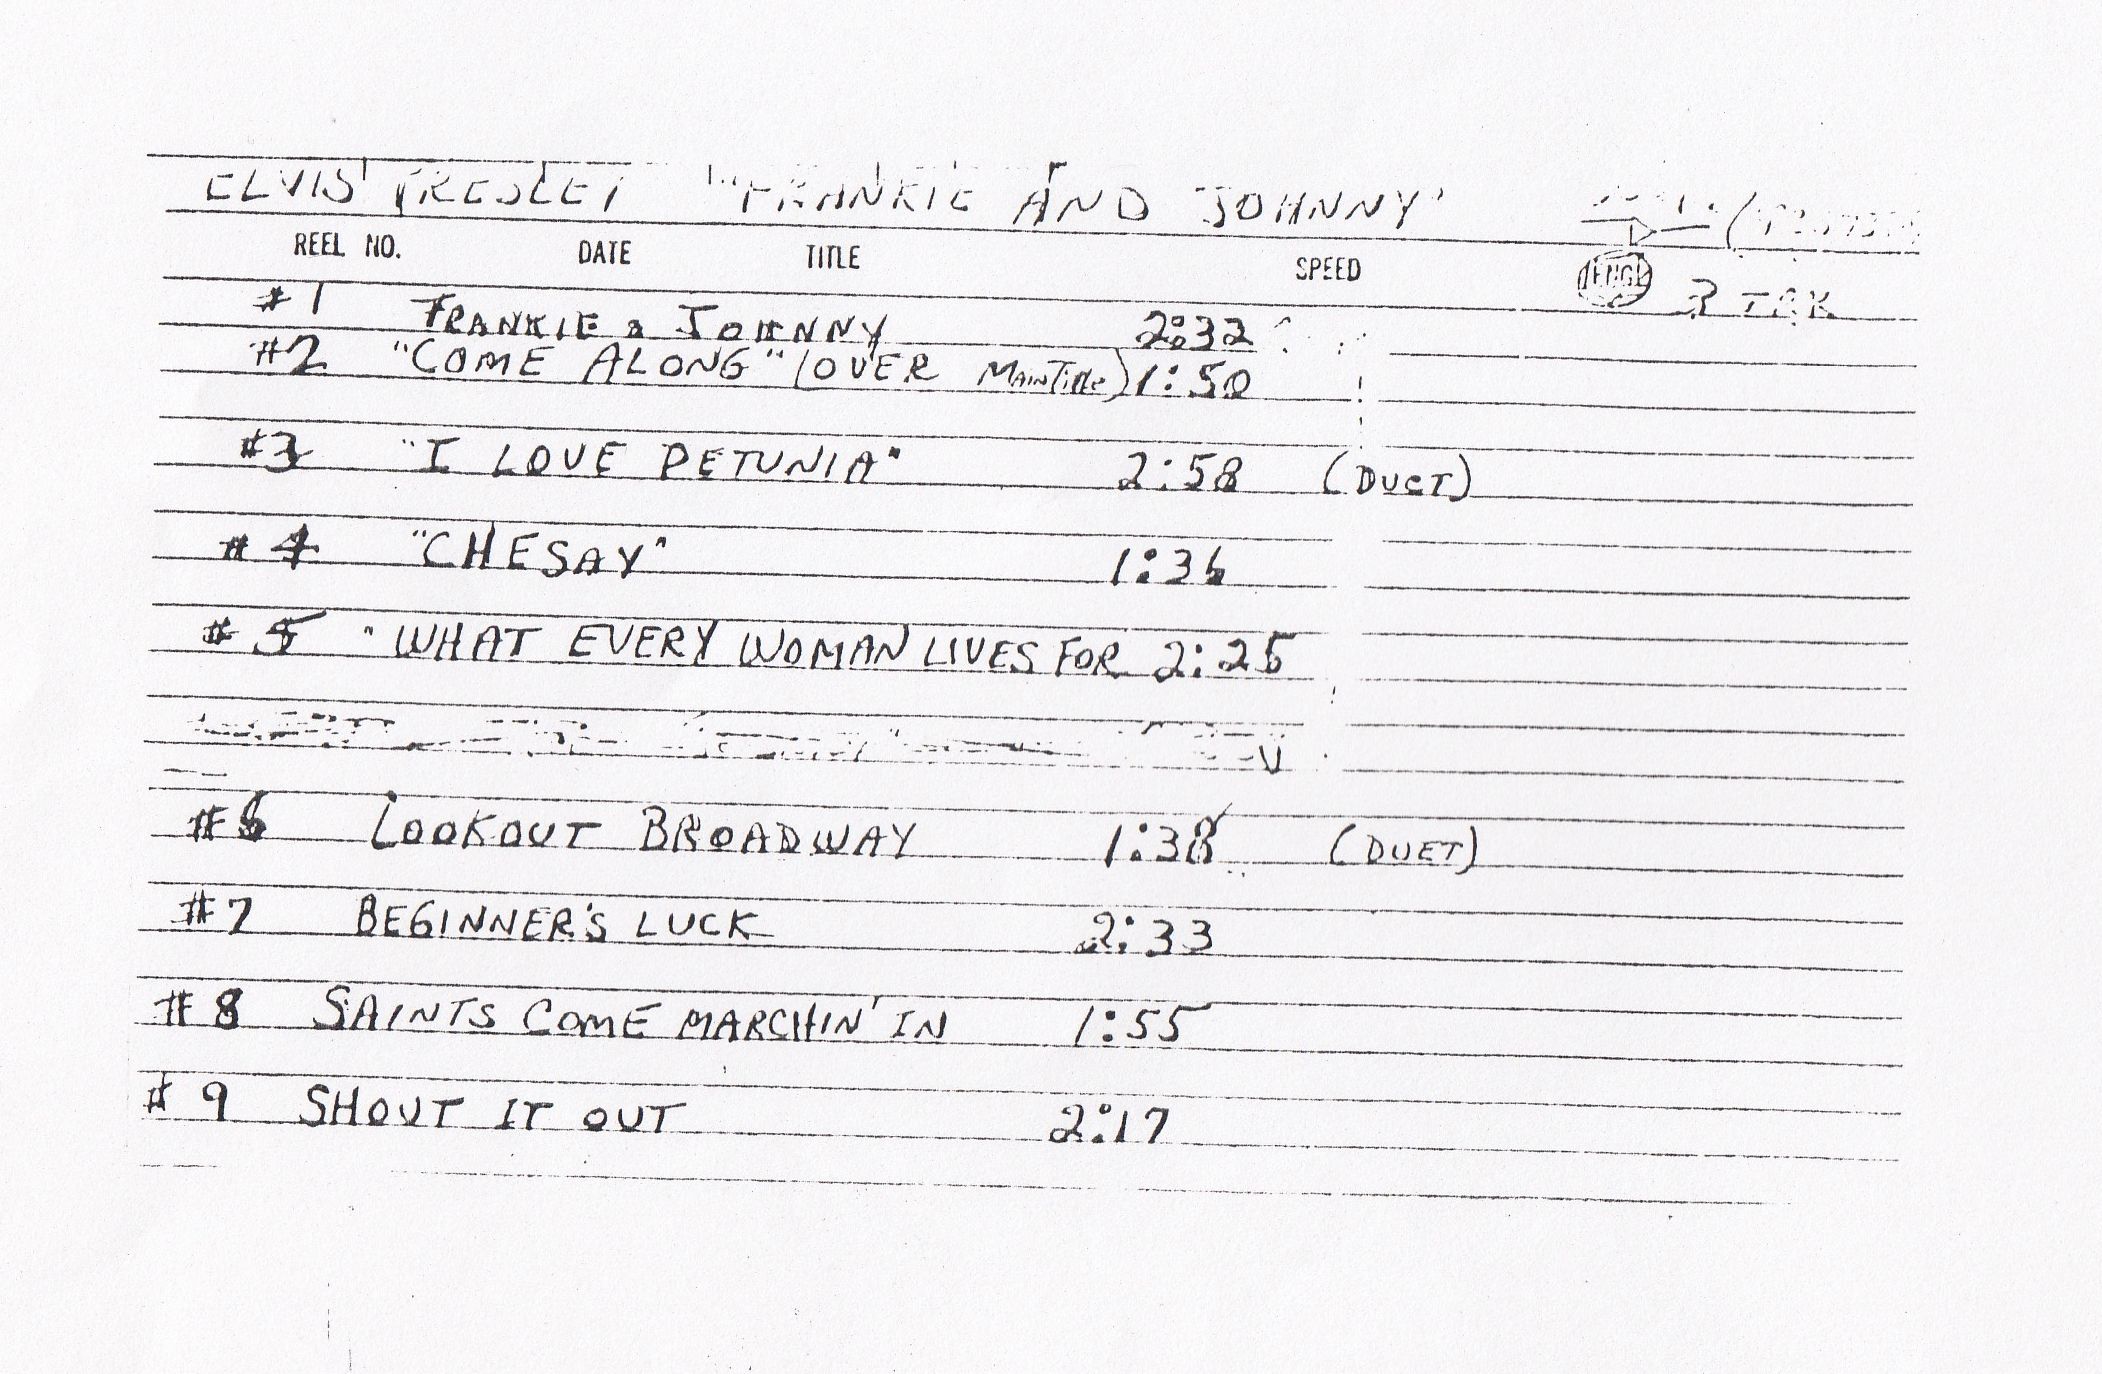 ELVIS PRESLEY "FRANKIE AND JOHNNY"
REEL NO. DATE TITLE SPEED
ENG 3 TRK
#1 FRANKIE & JOHNNY 2:32
#2 "COME ALONG" (OVER MAIN TITLE) 1:50
#3 "I LOVE PETUNIA" 2:58 (DUET)
#4 "CHESAY" 1:36
#5 "WHAT EVERY WOMAN LIVES FOR 2:25
#6 LOOKOUT BROADWAY 1:38 (DUET)
#7 BEGINNER'S LUCK 2:33
#8 SAINTS COME MARCHIN' IN 1:55
#9 SHOUT IT OUT 2:17